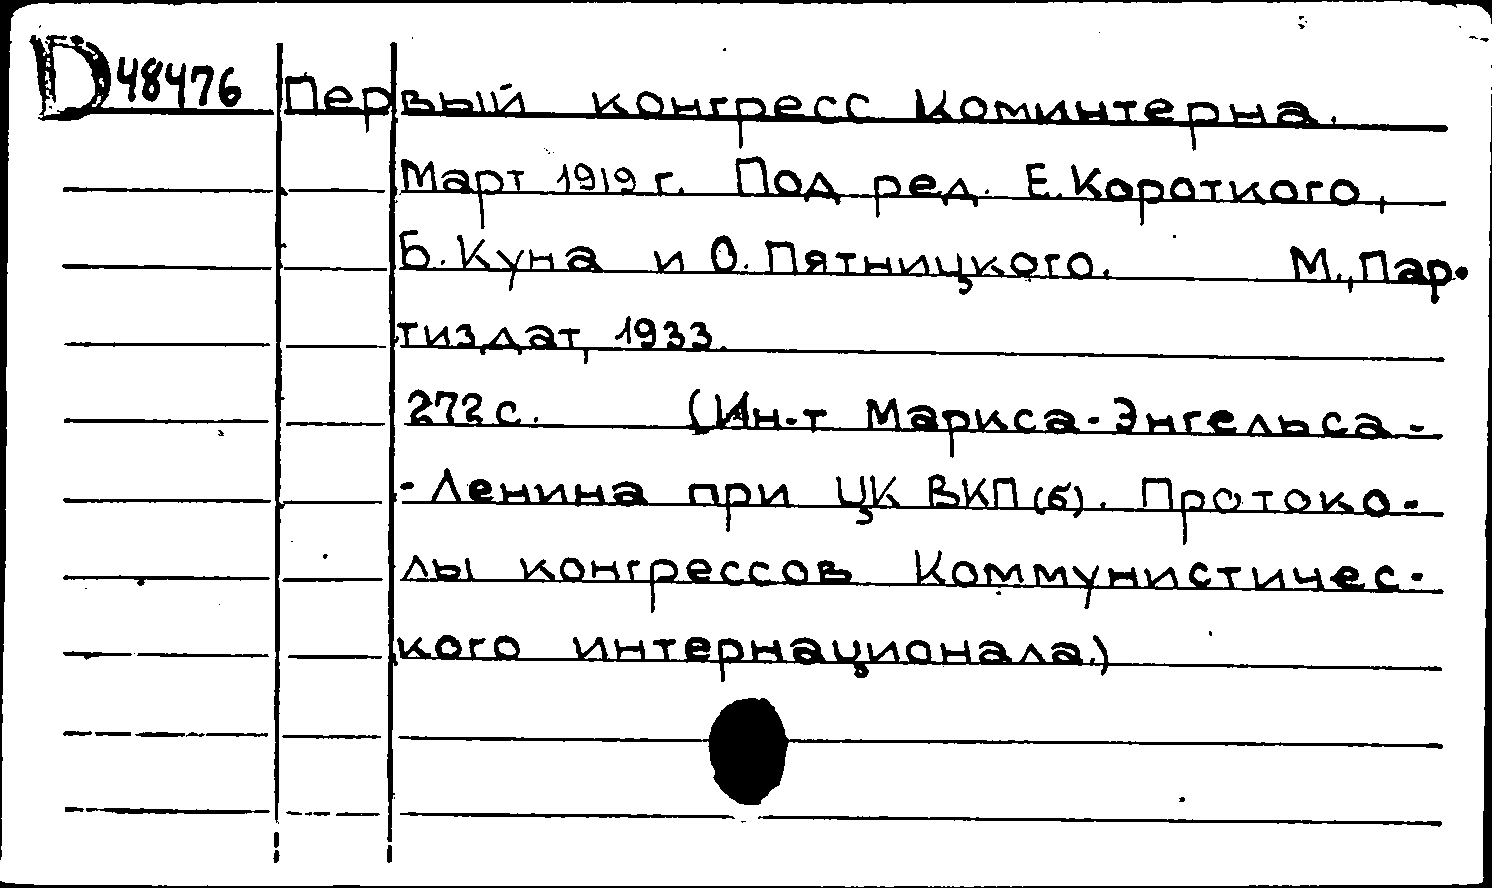 D 48476 Первый конгресс Коминтерна.
Март 1919 г. Под ред. Е. Короткого,
Б. Куна и О. Пятницкого. М., Пар-
тиздат, 1933.
272 с. (Ин-т Маркса-Энгельса-
-Ленина при ЦК ВКП(б). Протоко-
лы конгрессов Коммунистичес-
кого интернационала.)